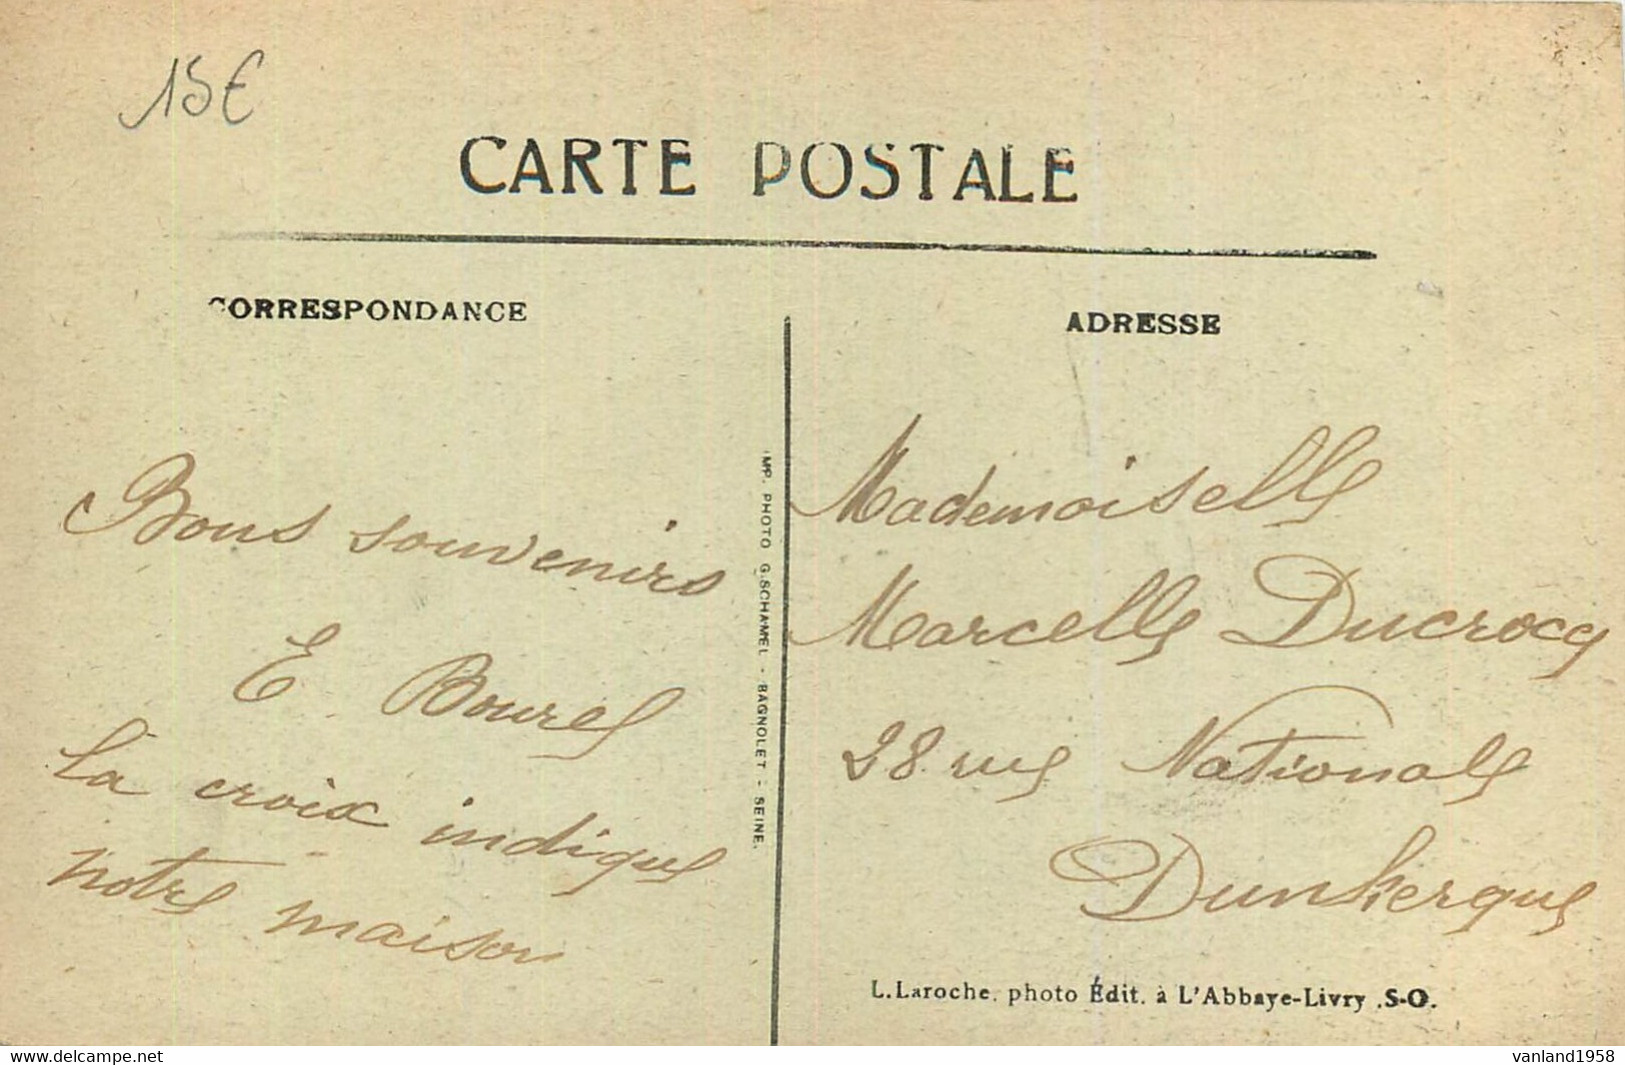 15€
CARTE POSTALE
CORRESPONDANCE
ADRESSE
Bons souvenirs
E Bourel
la croix indique
notre maison
IMP. PHOTO G. SCHAMEL - BAGNOLET - SEINE.
Mademoiselle
Marcelle Ducrocq
28 rue Nationale
Dunkerque
L. Laroche, photo Édit. à L'Abbaye-Livry .S-O.
www.delcampe.net
vanland1958